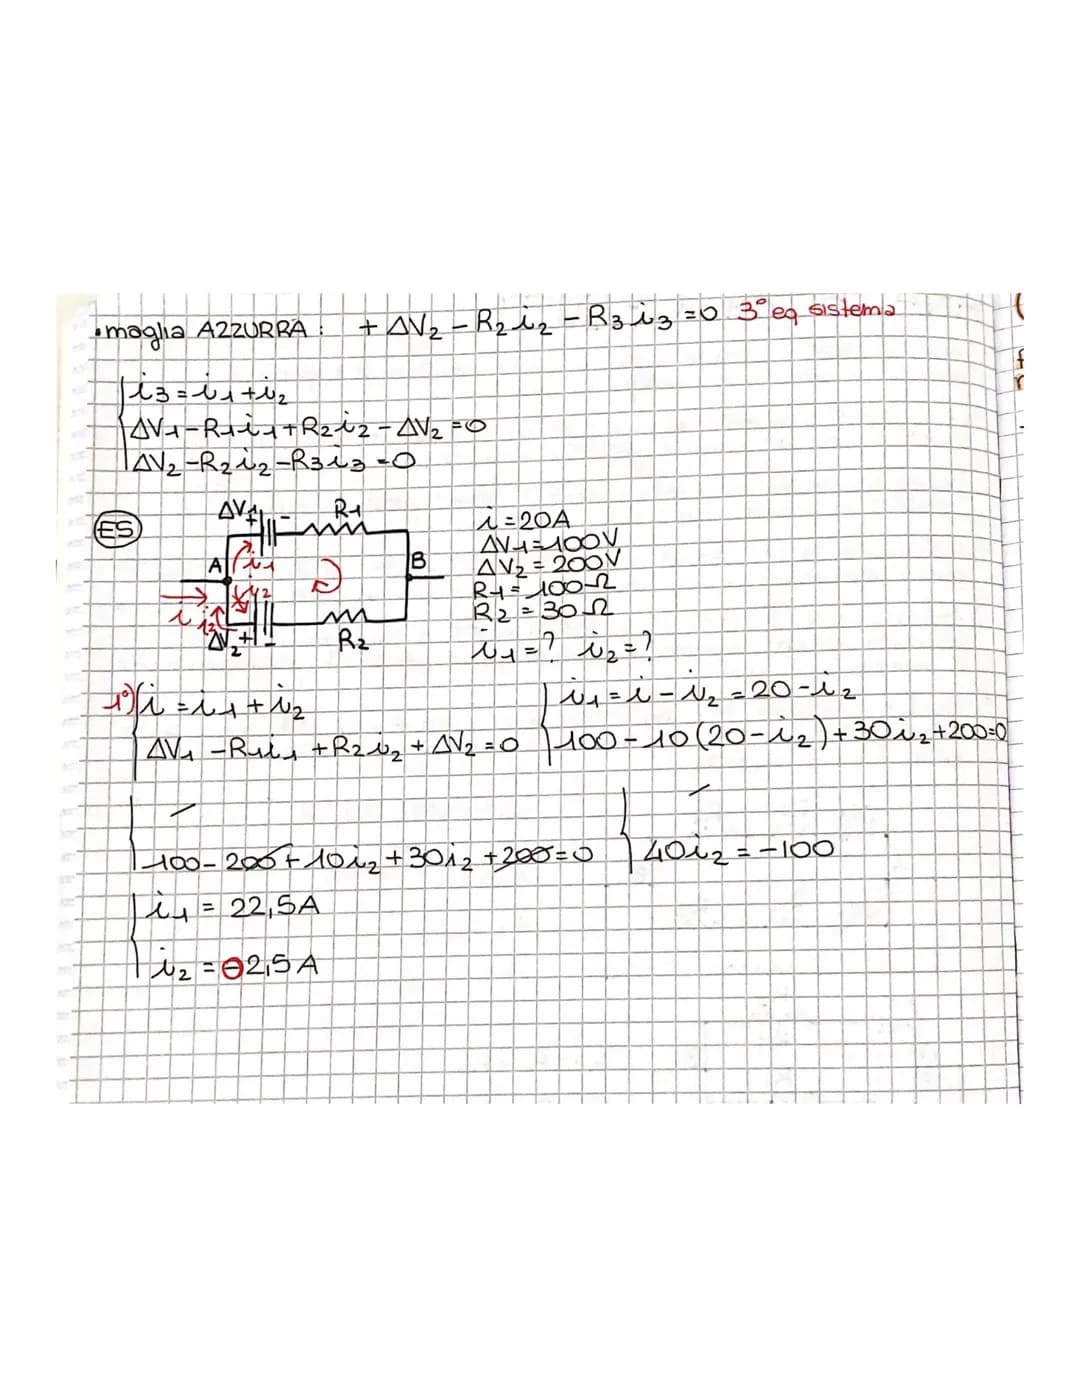 • maglia AZZURRA : + ΔV₂ - R₂i₂ - R₃i₃ = 0 3° eq sistema
i₃ = i₁ + i₂
ΔV₁ - R₁i₁ + R₂i₂ - ΔV₂ = 0
ΔV₂ - R₂i₂ - R₃i₃ = 0
ES
ΔV₁ + - R₁
A i₁ B
i i₂ i₂
ΔV₂ + - R₂
i = 20A
ΔV₁ = 100V
ΔV₂ = 200V
R₁ = 100Ω
R₂ = 30Ω
i₁ = ? i₂ = ?
1°) i = i₁ + i₂
ΔV₁ - R₁i₁ + R₂i₂ + ΔV₂ = 0
i₁ = i - i₂ = 20 - i₂
100 - 10(20 - i₂) + 30i₂ + 200 = 0
100 - 200 + 10i₂ + 30i₂ + 200 = 0
40i₂ = -100
i₁ = 22,5A
i₂ = -2,5A